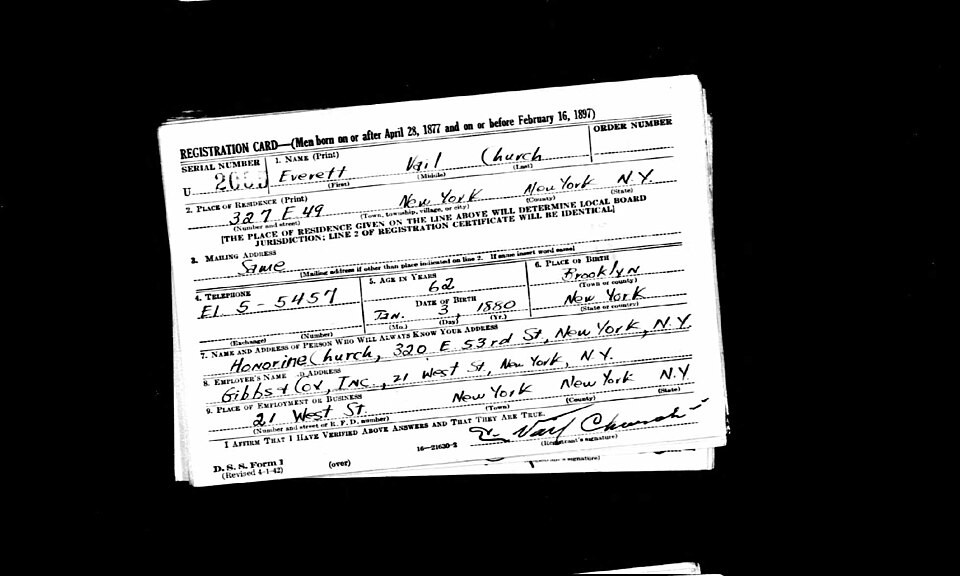 REGISTRATION CARD—(Men born on or after April 28, 1877 and on or before February 16, 1897)
SERIAL NUMBER 1. NAME (Print) ORDER NUMBER
U Everett Vail Church
(First) (Middle) (Last)
2. PLACE OF RESIDENCE (Print)
327 E 49 New York New York N.Y.
(Number and street) (Town, township, village, or city) (County) (State)
[THE PLACE OF RESIDENCE GIVEN ON THE LINE ABOVE WILL DETERMINE LOCAL BOARD
JURISDICTION; LINE 2 OF REGISTRATION CERTIFICATE WILL BE IDENTICAL]
3. MAILING ADDRESS
Same
[Mailing address if other than place indicated on line 2. If same insert word same]
4. TELEPHONE 5. AGE IN YEARS 6. PLACE OF BIRTH
El 5-5457 62 Brooklyn
(Town or county)
DATE OF BIRTH New York
Jan. 3, 1880 (State or country)
(Exchange) (Number) (Mo.) (Day) (Yr.)
7. NAME AND ADDRESS OF PERSON WHO WILL ALWAYS KNOW YOUR ADDRESS
Honorine Church, 320 E 53rd St, New York, N.Y.
8. EMPLOYER'S NAME AND ADDRESS
Gibbs & Cox, Inc., 21 West St, New York, N.Y.
9. PLACE OF EMPLOYMENT OR BUSINESS
21 West St. New York New York N.Y
(Number and street or R. F. D. number) (Town) (County) (State)
I AFFIRM THAT I HAVE VERIFIED ABOVE ANSWERS AND THAT THEY ARE TRUE.
E. Vail Church
D. S. S. Form 1 (over) 16—21630-2 (Registrant's signature)
(Revised 4-1-42)
signature)